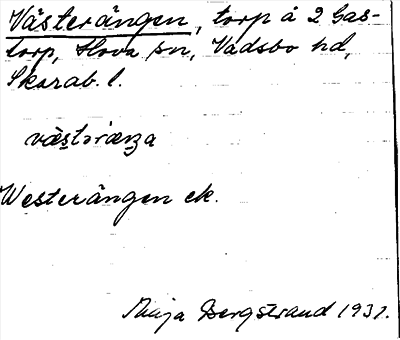 Västerängen, torp å 2 Gas-
torp, Hova sn, Vadsbo hd,
Skarab. l.
västəräŋa
Westerängen ek.
Maja Bergstrand 1931.